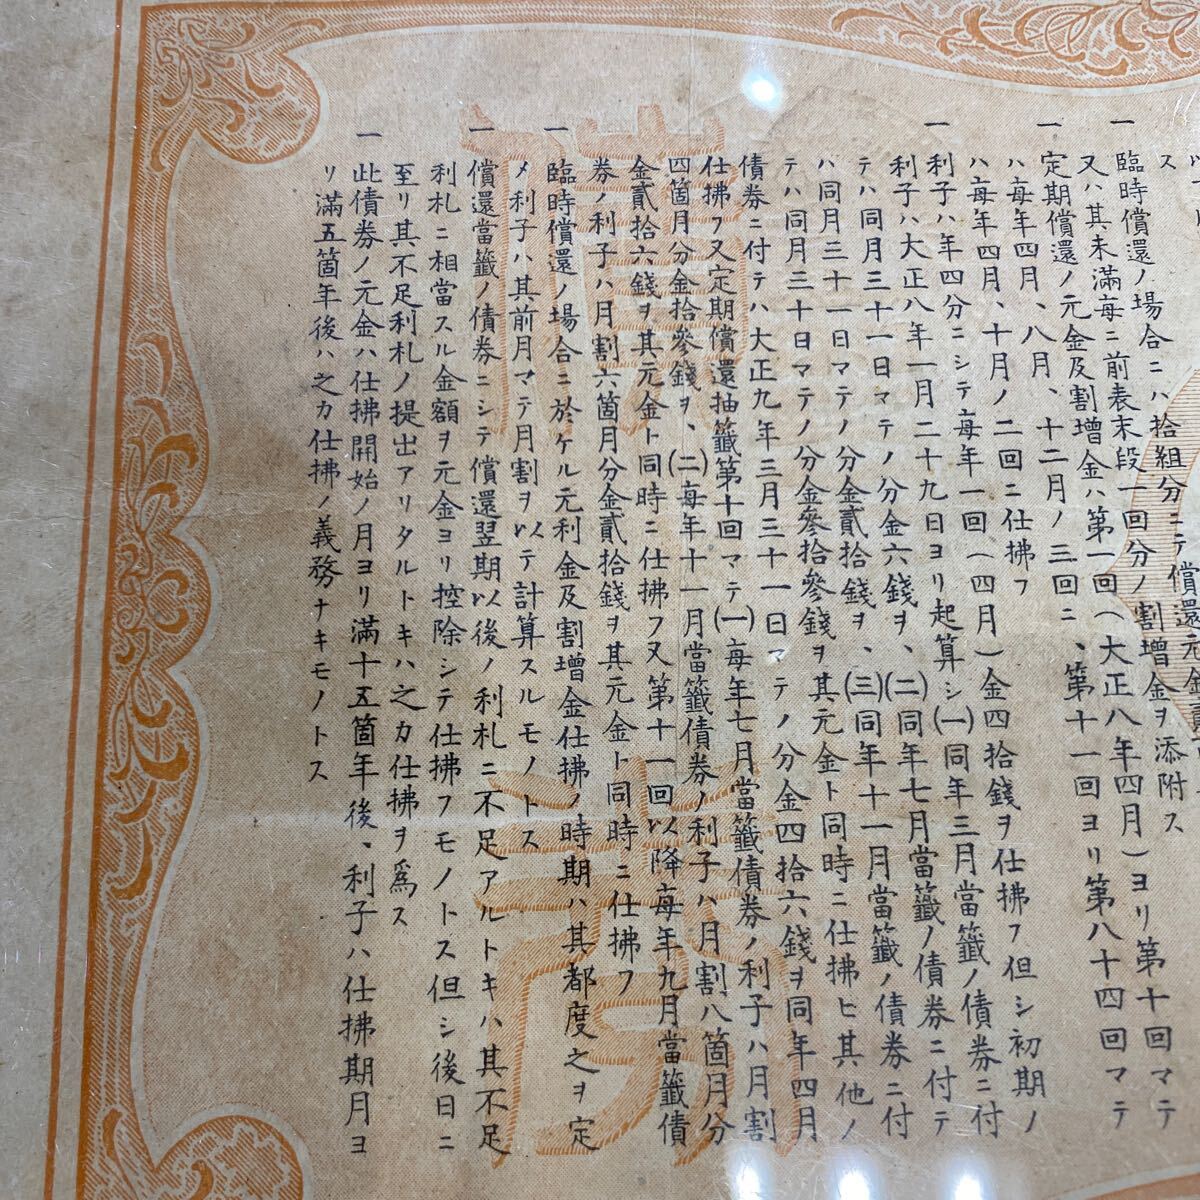 ス
一 臨時償還ノ場合ニハ拾組分ニテ償還元金
又ハ其未滿每ニ前表末段一回分ノ割增金ヲ添附ス
一 定期償還ノ元金及割增金ハ第一回(大正八年四月)ヨリ第十回マテ
ハ每年四月、八月、十二月ノ三回ニ、第十一回ヨリ第八十四回マテ
ハ每年四月、十月ノ二回ニ仕拂フ
一 利子ハ年四分ニシテ每年一回(四月)金四拾錢ヲ仕拂フ但シ初期ノ
利子ハ大正八年一月二十九日ヨリ起算シ(一)同年三月當籤ノ債券ニ付
テハ同月三十一日マテノ分金六錢ヲ、(二)同年七月當籤ノ債券ニ付テ
ハ同月三十一日マテノ分金貳拾錢ヲ、(三)同年十一月當籤ノ債券ニ付
テハ同月三十日マテノ分金參拾參錢ヲ其元金ト同時ニ仕拂ヒ其他ノ
債券ニ付テハ大正九年三月三十一日マテノ分金四拾六錢ヲ同年四月
仕拂フ又定期償還抽籤第十回マテ(一)每年七月當籤債券ノ利子ハ月割
四箇月分金拾參錢ヲ、(二)每年十一月當籤債券ノ利子ハ月割八箇月分
金貳拾六錢ヲ其元金ト同時ニ仕拂フ又第十一回以降每年九月當籤債
券ノ利子ハ月割六箇月分金貳拾錢ヲ其元金ト同時ニ仕拂フ
一 臨時償還ノ場合ニ於ケル元利金及割增金仕拂ノ時期ハ其都度之ヲ定
メ利子ハ其前月マテ月割ヲ以テ計算スルモノトス
一 償還當籤ノ債券ニシテ償還翌期以後ノ利札ニ不足アルトキハ其不足
利札ニ相當スル金額ヲ元金ヨリ控除シテ仕拂フモノトス但シ後日ニ
至リ其不足利札ノ提出アリタルトキハ之カ仕拂ヲ爲ス
一 此債券ノ元金ハ仕拂開始ノ月ヨリ滿十五箇年後、利子ハ仕拂期月ヨ
リ滿五箇年後ハ之カ仕拂ノ義務ナキモノトス